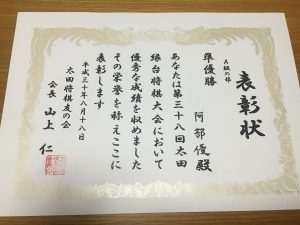 表彰状
A級の部
準優勝 阿部優殿
あなたは第三十八回太田
縁台将棋大会において
優秀な成績を収めました
その栄誉を称えここに
表彰します
平成三十年八月十八日
太田将棋友の会
会長 山上 仁